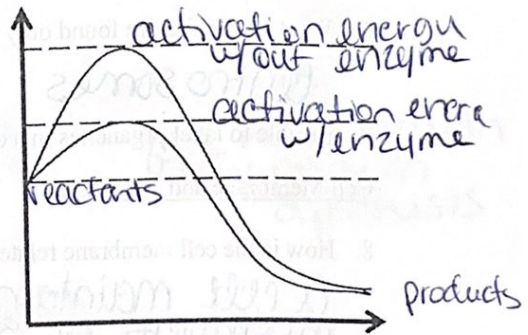 activation energy
w/out enzyme
activation energ
w/enzyme
reactants
products